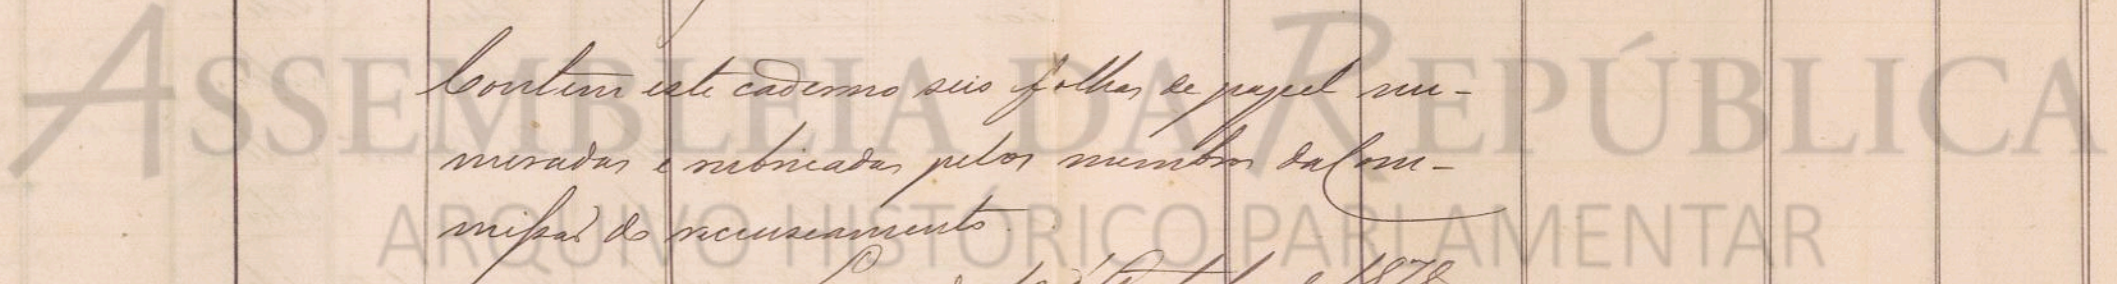 ASSEMBLEIA DA REPÚBLICA
ARQUIVO HISTÓRICO PARLAMENTAR
Contem este caderno seis folhas de papel nu-
meradas e rubricadas pelos membros da Com-
missão do recenseamento.
1878